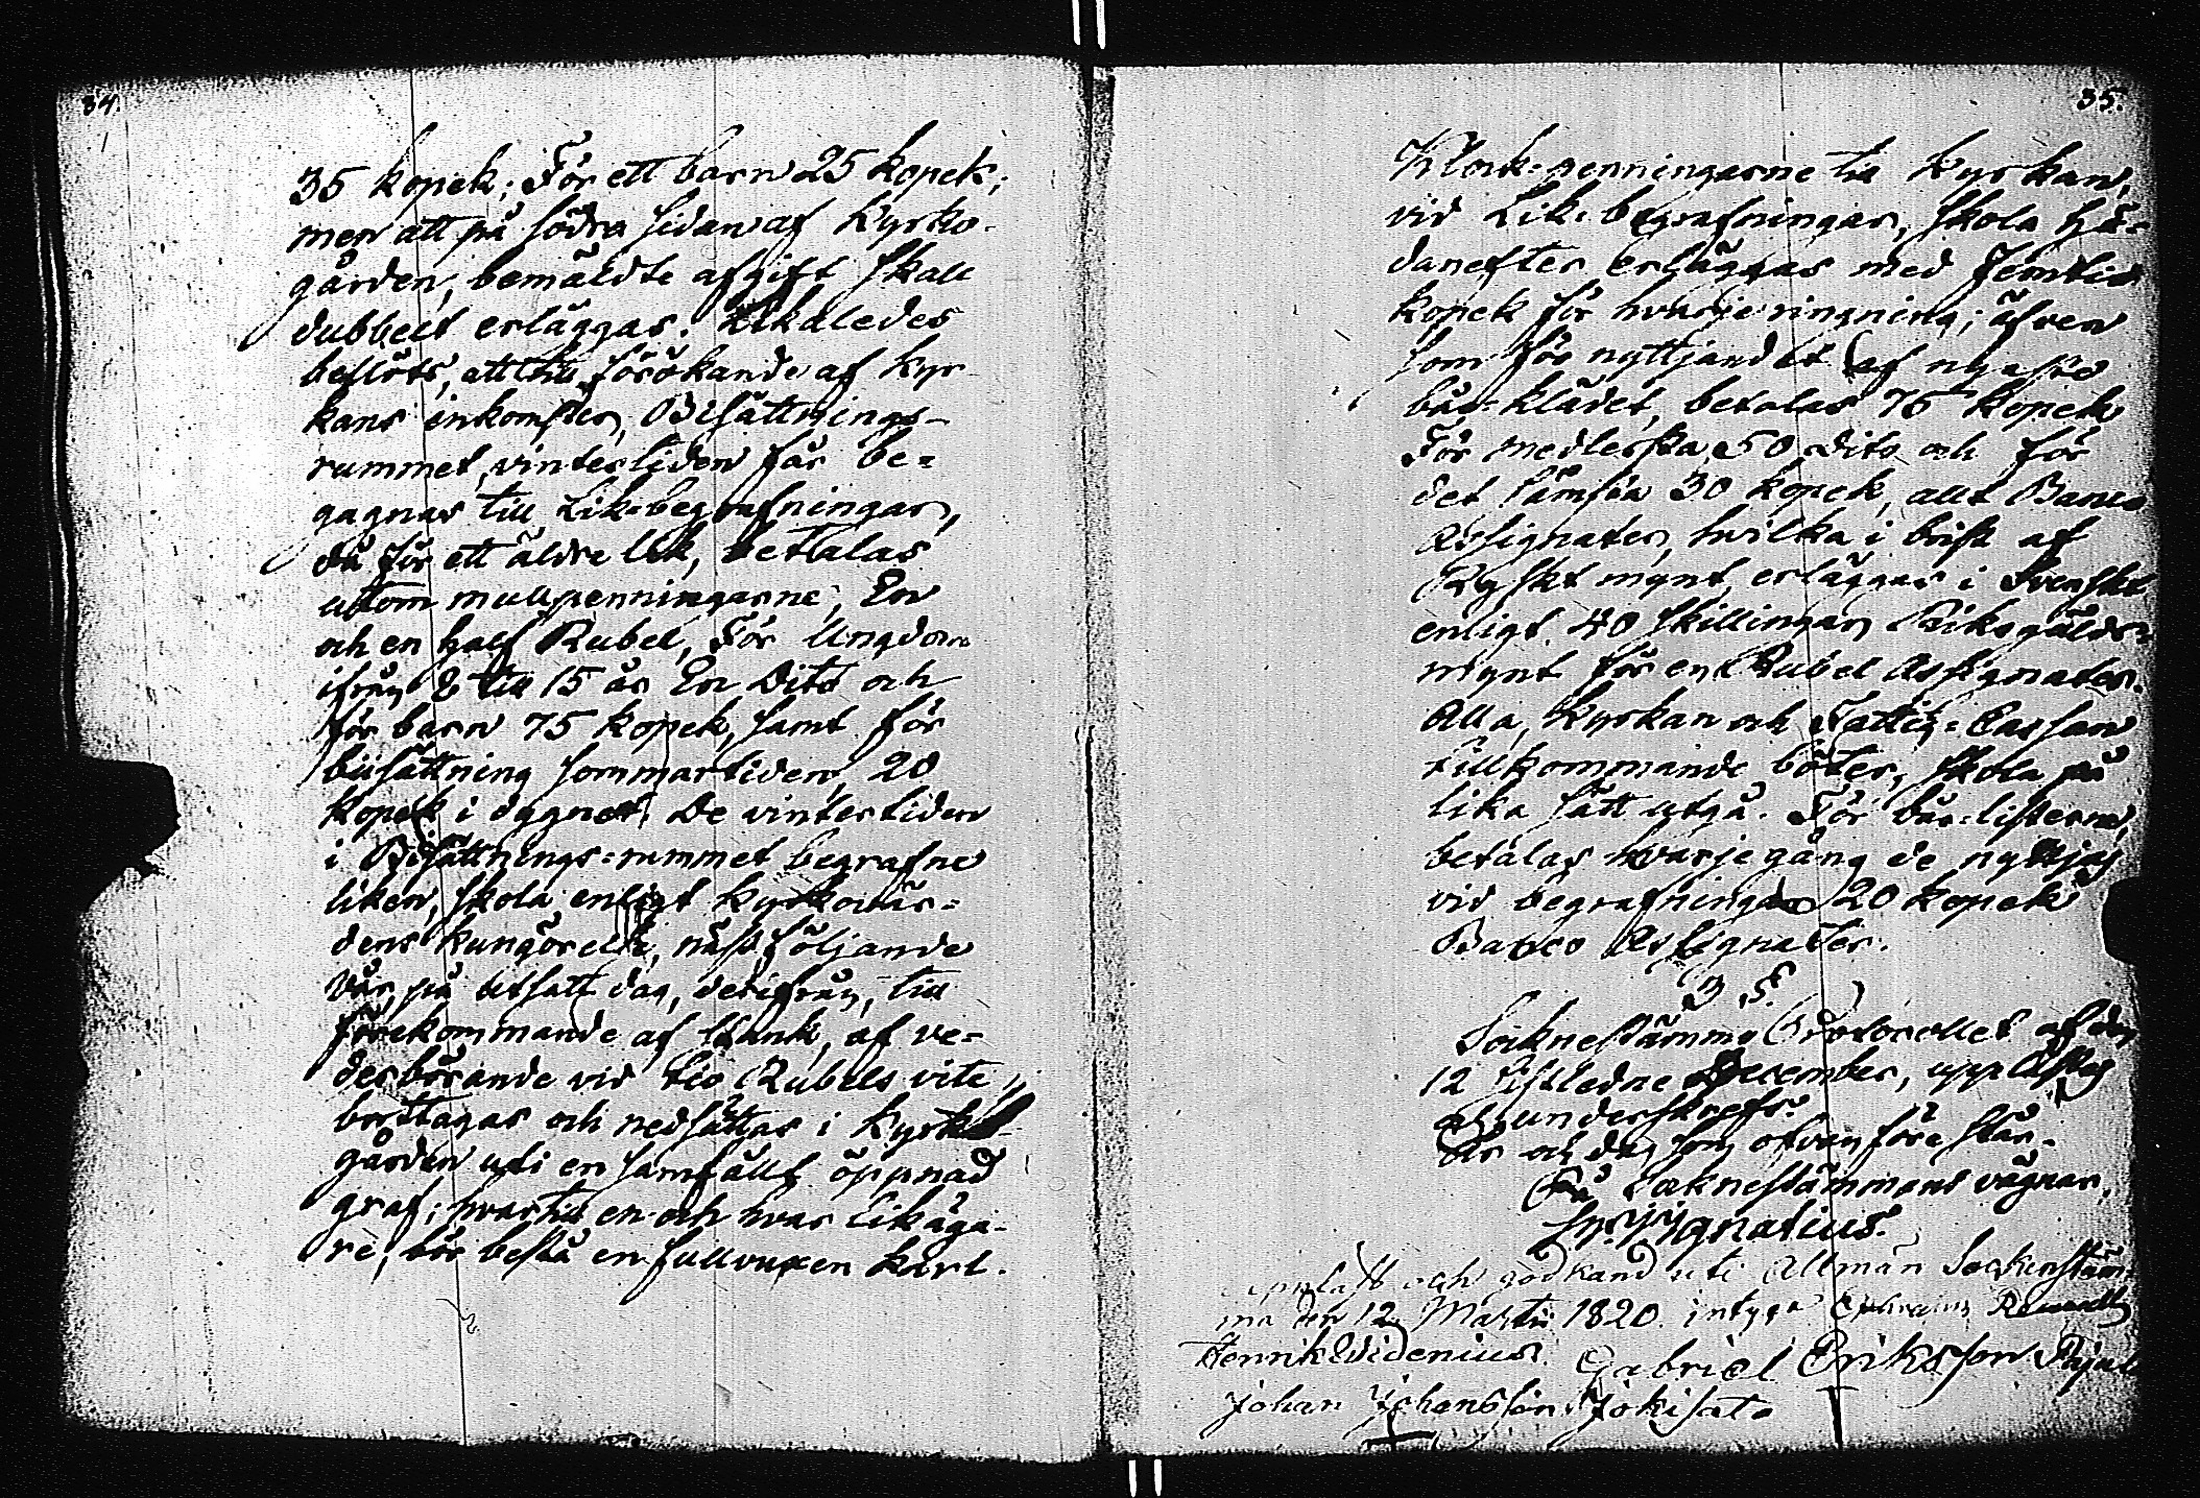 34.
35 kopek; För ett barn 25 kopek;
men att på södra sidan af Kyrko-
gården, bemäldte afgift skall
dubbelt erläggas. Likaledes
beslöts, att till förökande af Kyr-
kans inkomster, Bisättnings-
rummet vintertiden får be-
gagnas till Lik-begrafningar,
då för ett äldre lik, betalas
utom mullpenningarne, En
och en half Rubel, För Ungdom
ifrån 2 till 15 år En Dito och
för barn 75 kopek, samt för
bisättning sommartiden 20
kopek i dygnet. De vintertiden
i Bisättnings-rummet begrafne
liken, skola enligt Kyrkovär-
dens kungörelse, nästföljande
Vår, på utsatt dag, derifrån, till
förekommande af stank, af ve-
derbörande vid tio Rubels vite,
borttagas och nedsättas i Kyrko-
gården uti en samfällt öppnad
graf; hvartill en och hvar Likäga-
re, bör bestå en fullvuxen karl.
35.
Klock-penningarne till Kyrkan,
vid Lik-begrafningar, skola hä-
danefter erläggas med femtio
kopek för hvarje ringning; äfven
som för nyttjandet af nyaste
bår-klädet, betalas 75 kopek
För medlersta 50 Dito och för
det sämsta 30 kopek, allt Banco
Assignater, hvilka i brist af
Ryskt mynt, erläggas i Svenskt
enligt 40 skillingar Riksgälds-
mynt för en Rubel Assignater.
Alla, Kyrkan och Fattig-Cassan
tillkommande böter, skola på
lika sätt utgå. För bår-listerna,
betalas hvarje gång de nyttjas
vid begrafningar 20 kopek
Banco Assignater.
3 §.
Socknestämmo Protocollet af den
12 sistledne December, upplästes
och underskrefs.
År och dag som ofvanföre står.
På Socknestämmans vägnar,
Ignatius.
upplast och godkand uti Allmän Sockenstäm-
ma den 12 Martii 1820. intyga
Henrik Widenius. Gabriel Eriksson
Johan Johansson Jokisato